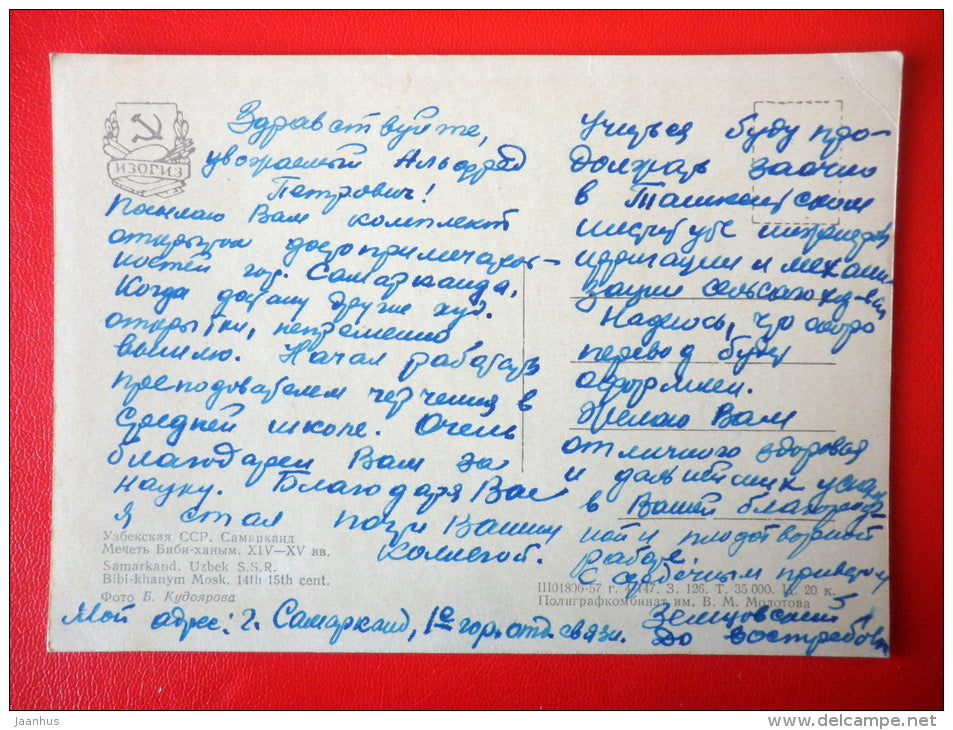 ИЗОГИЗ
Здравствуйте,
уважаемый Альфред
Петрович!
Посылаю Вам комплект
открыток достопримечатель-
ностей гор. Самарканда,
Когда достану другие худ.
открытки, непременно
вышлю. Начал работать
преподавателем черчения в
средней школе. Очень
благодарен Вам за
науку. Благодаря Вас
я стал почти Вашим
коллегой.
Учиться буду про-
должать заочно
в Ташкентском
институте инженеров
ирригации и механи
зации сельского хоз-ва
Надеюсь, что скоро
перевод будет
оформлен.
Желаю Вам
отличного здоровья
и дальнейших успех
в Вашей благород-
ной и плодотворной
работе.
С сердечным приветом
Земцовский
Мой адрес: г. Самарканд, 1е гор. отд. связи.
До востребов
Узбекская ССР. Самарканд
Мечеть Биби-ханым. XIV—XV вв.
Samarkand. Uzbek S.S.R.
Bibi-khanym Mosk. 14th-15th cent.
Фото Б. Кудоярова
Ш01806-57 г. З. 126. Т. 35 000. Ц. 20 к.
Полиграфкомбинат им. В. М. Молотова
jaanhus
www.delcampe.net